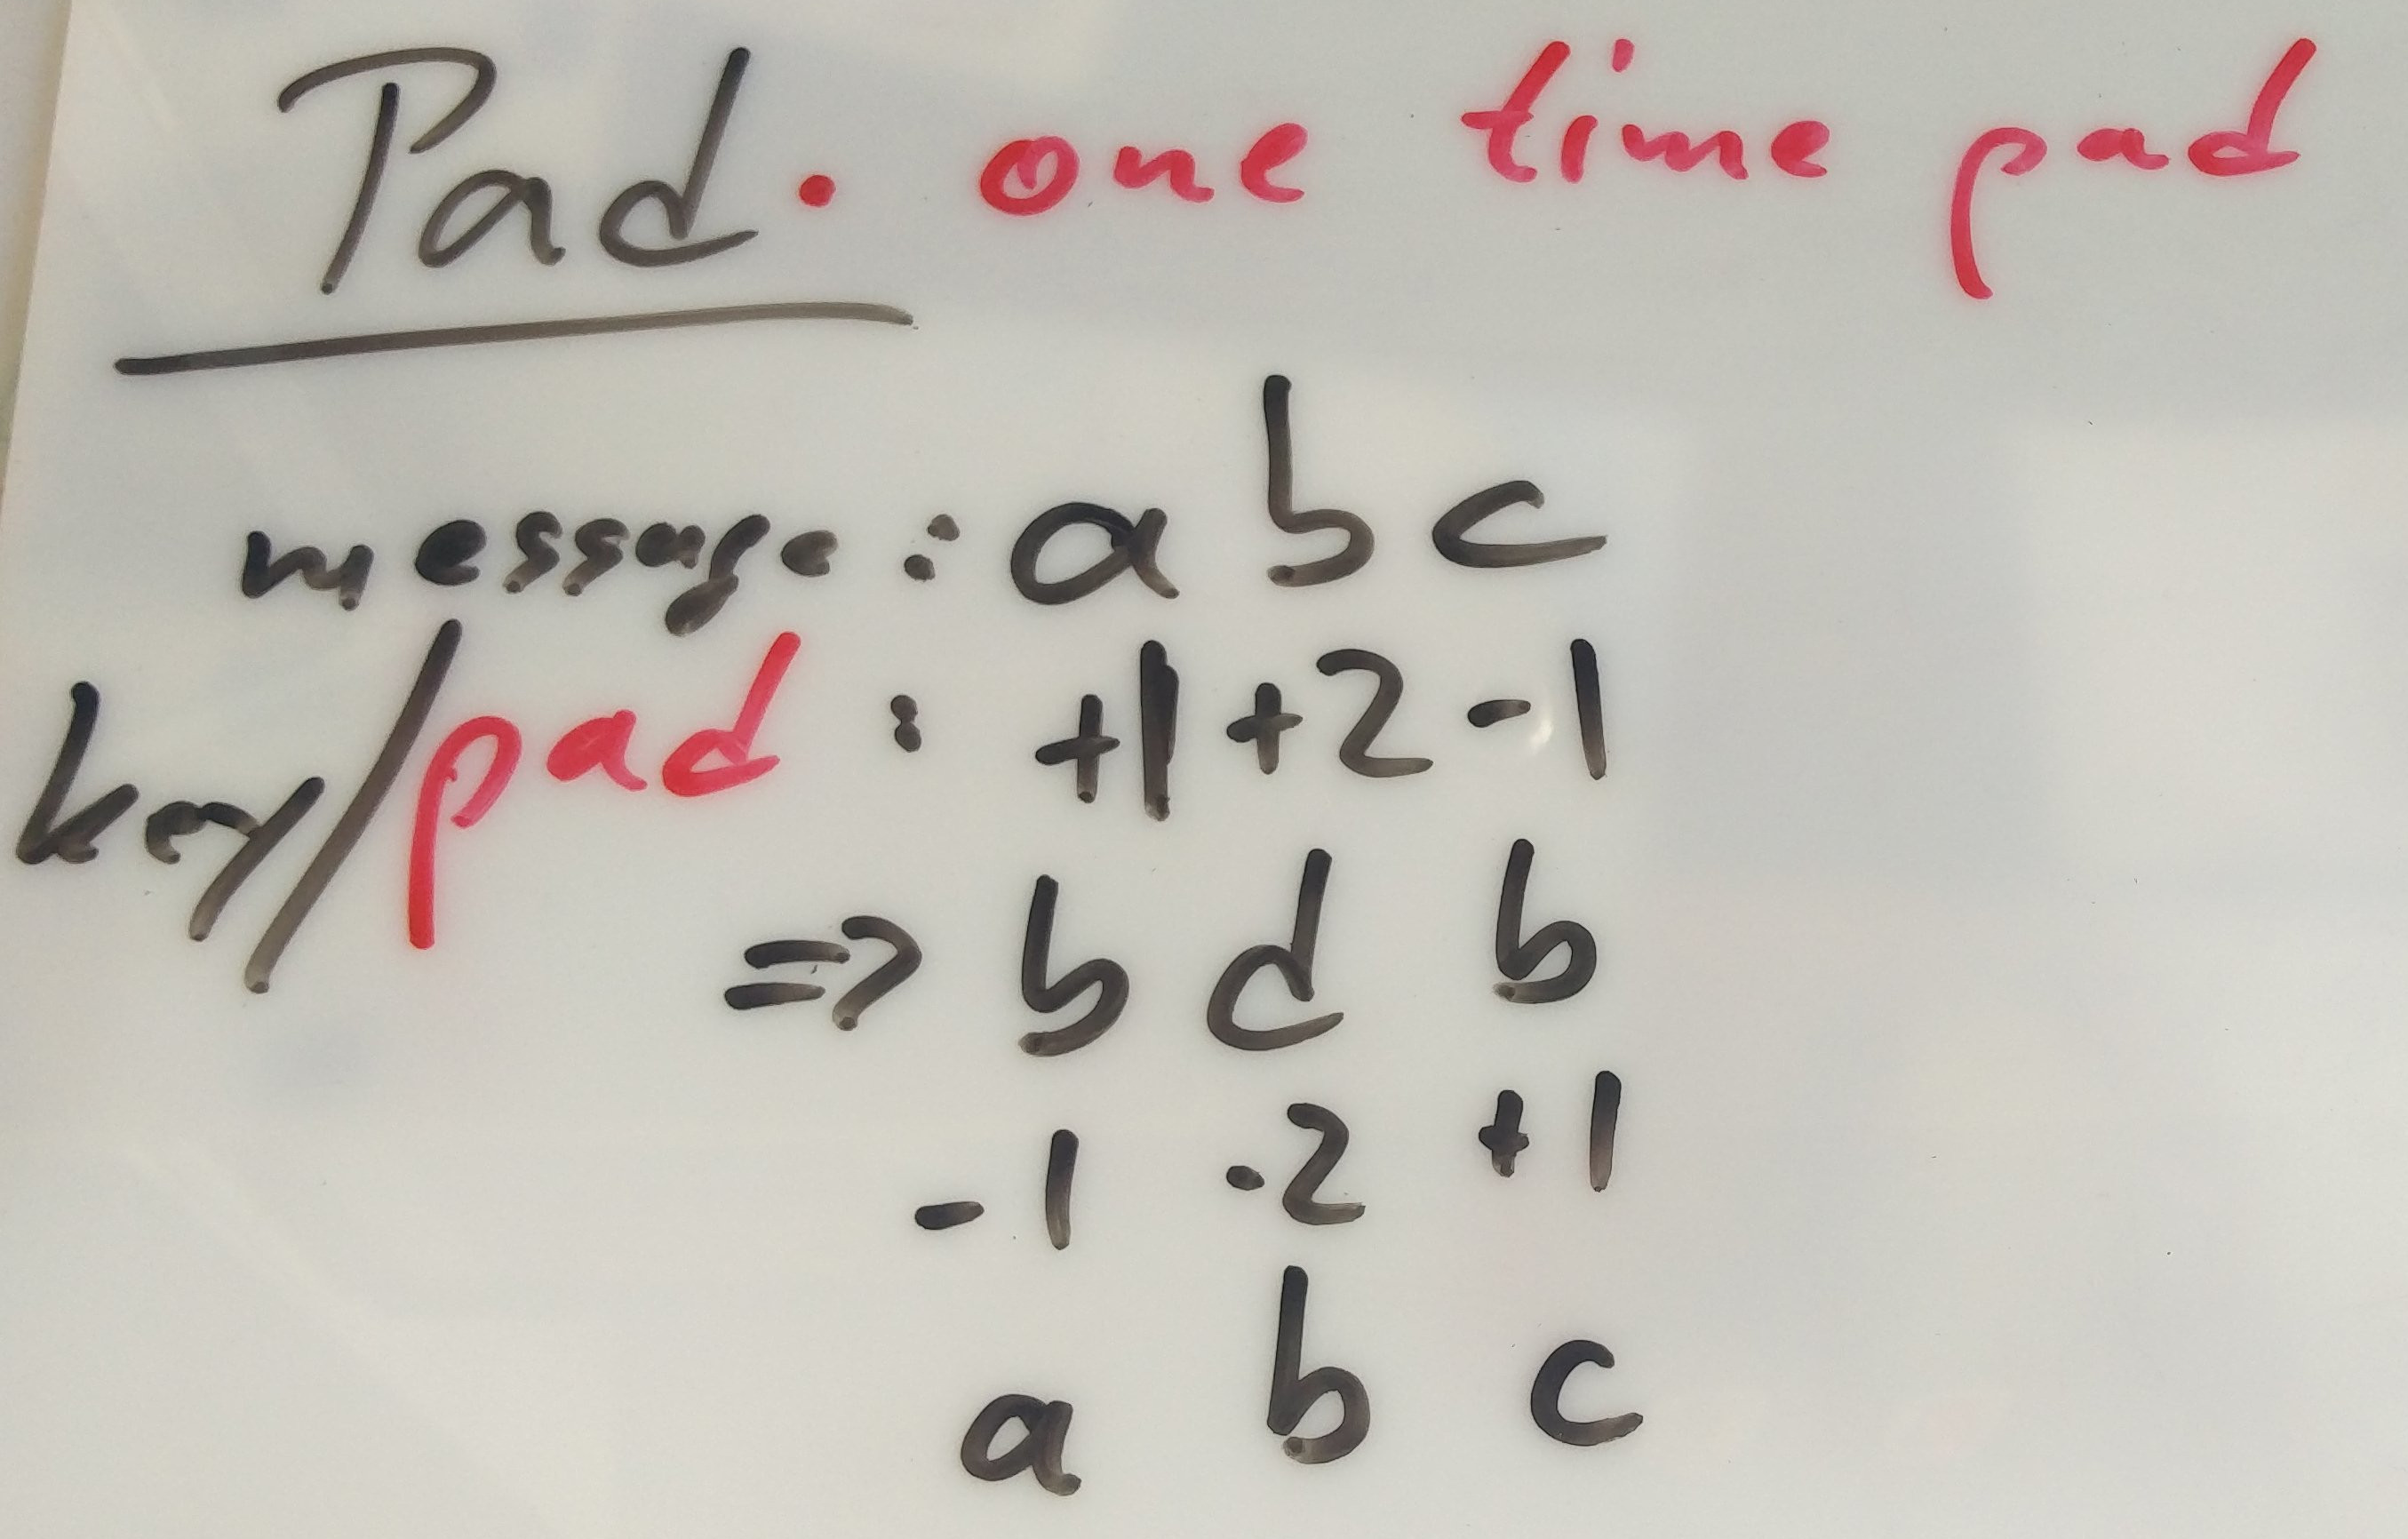 Pad. one time pad
message: a b c
key/pad: +1 +2 -1
=> b d b
-1 -2 +1
a b c